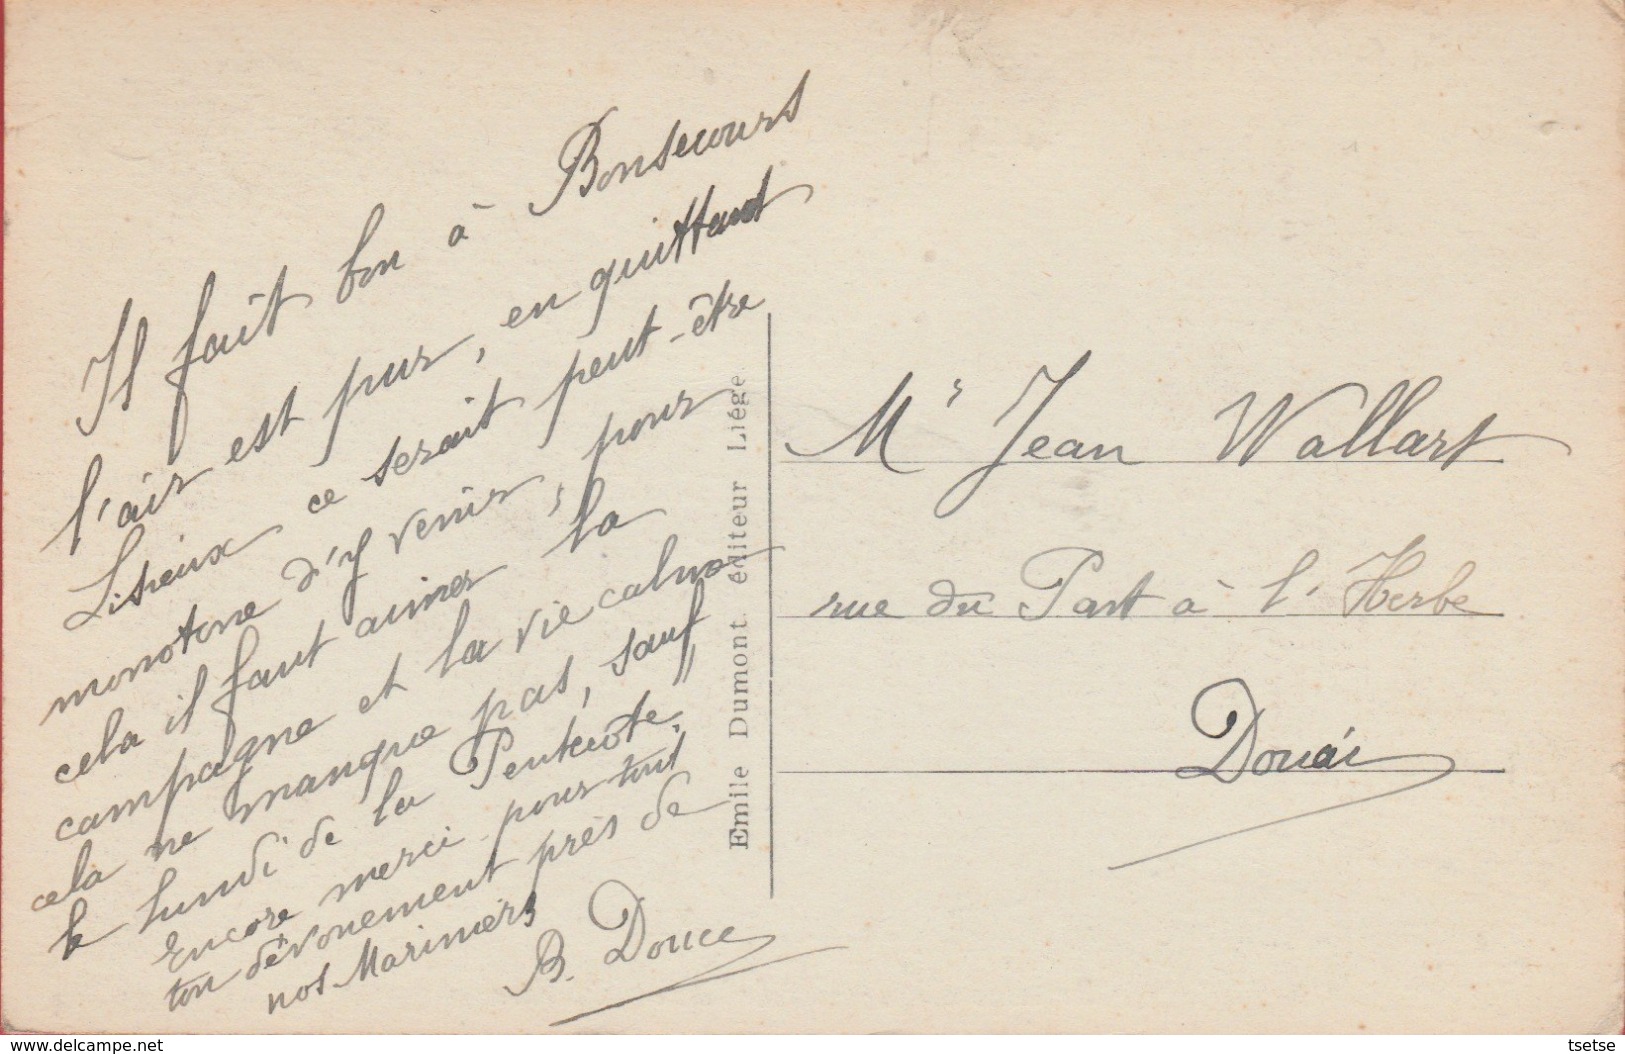 Il fait bon à Bonsecours
l'air est pur, en quittant
Lisieux ce serait peut-être
monotone d'y venir, pour
cela il faut aimer la
campagne et la vie calme
cela ne manque pas, sauf
le lundi de la Pentecôte.
Encore merci pour tout
ton dévouement près de
nos Mariniers
B. Douce
Emile Dumont. éditeur Liége.
Mr Jean Wallart
rue du Part à l'Herbe
Douai
delcampe.net
tsetse